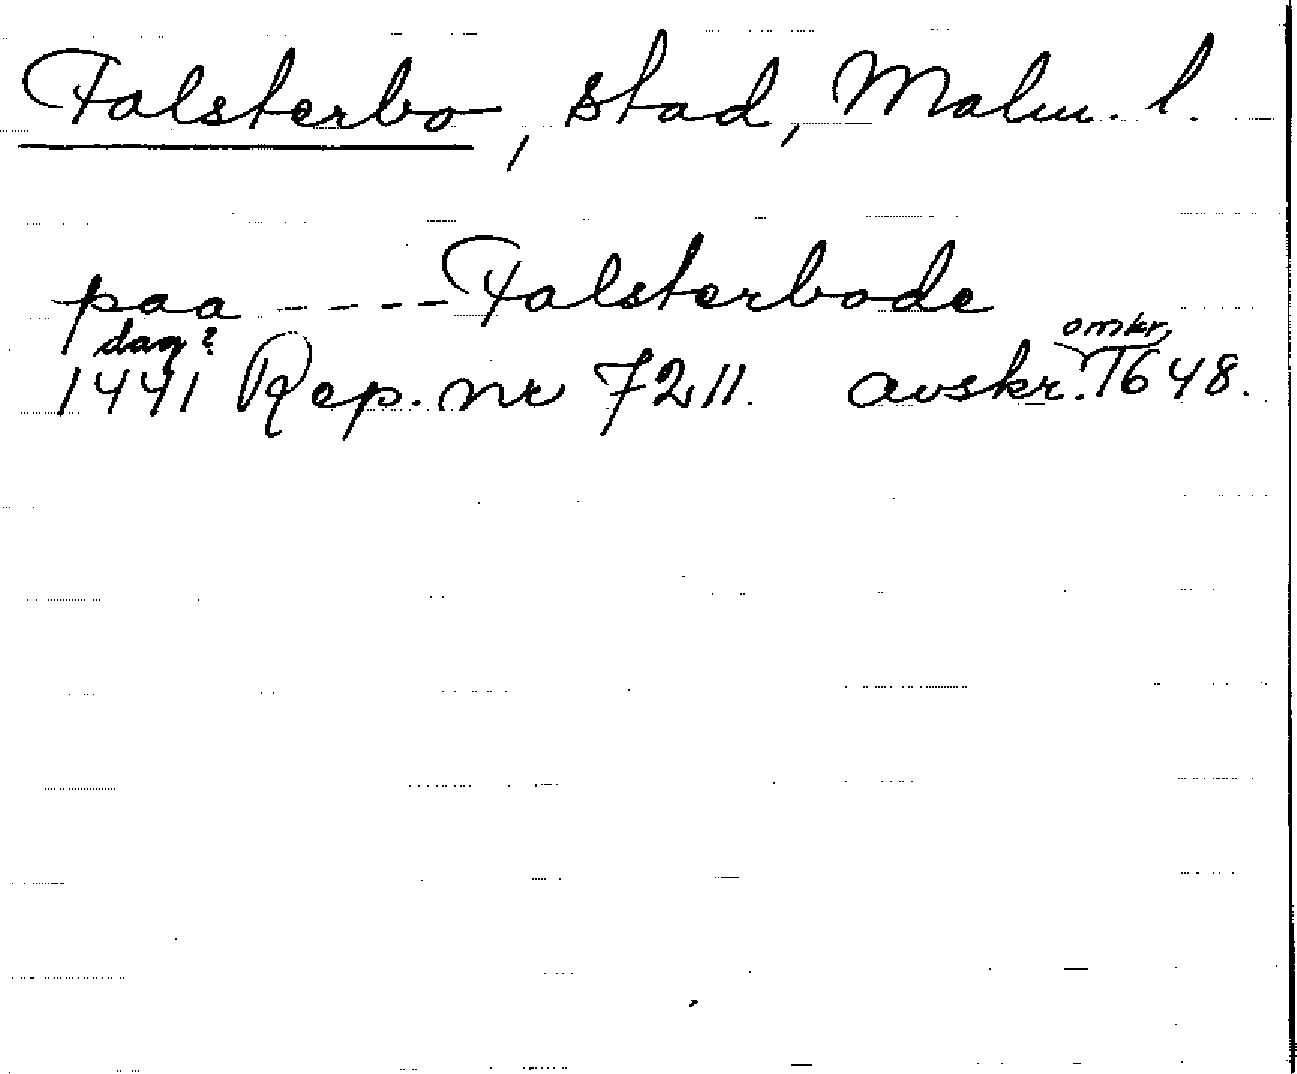 Falsterbo, stad, Malm. l.
paa ---- Falsterbode
dag? omkr.
1441 Rep. nr 7211. avskr. 1648.